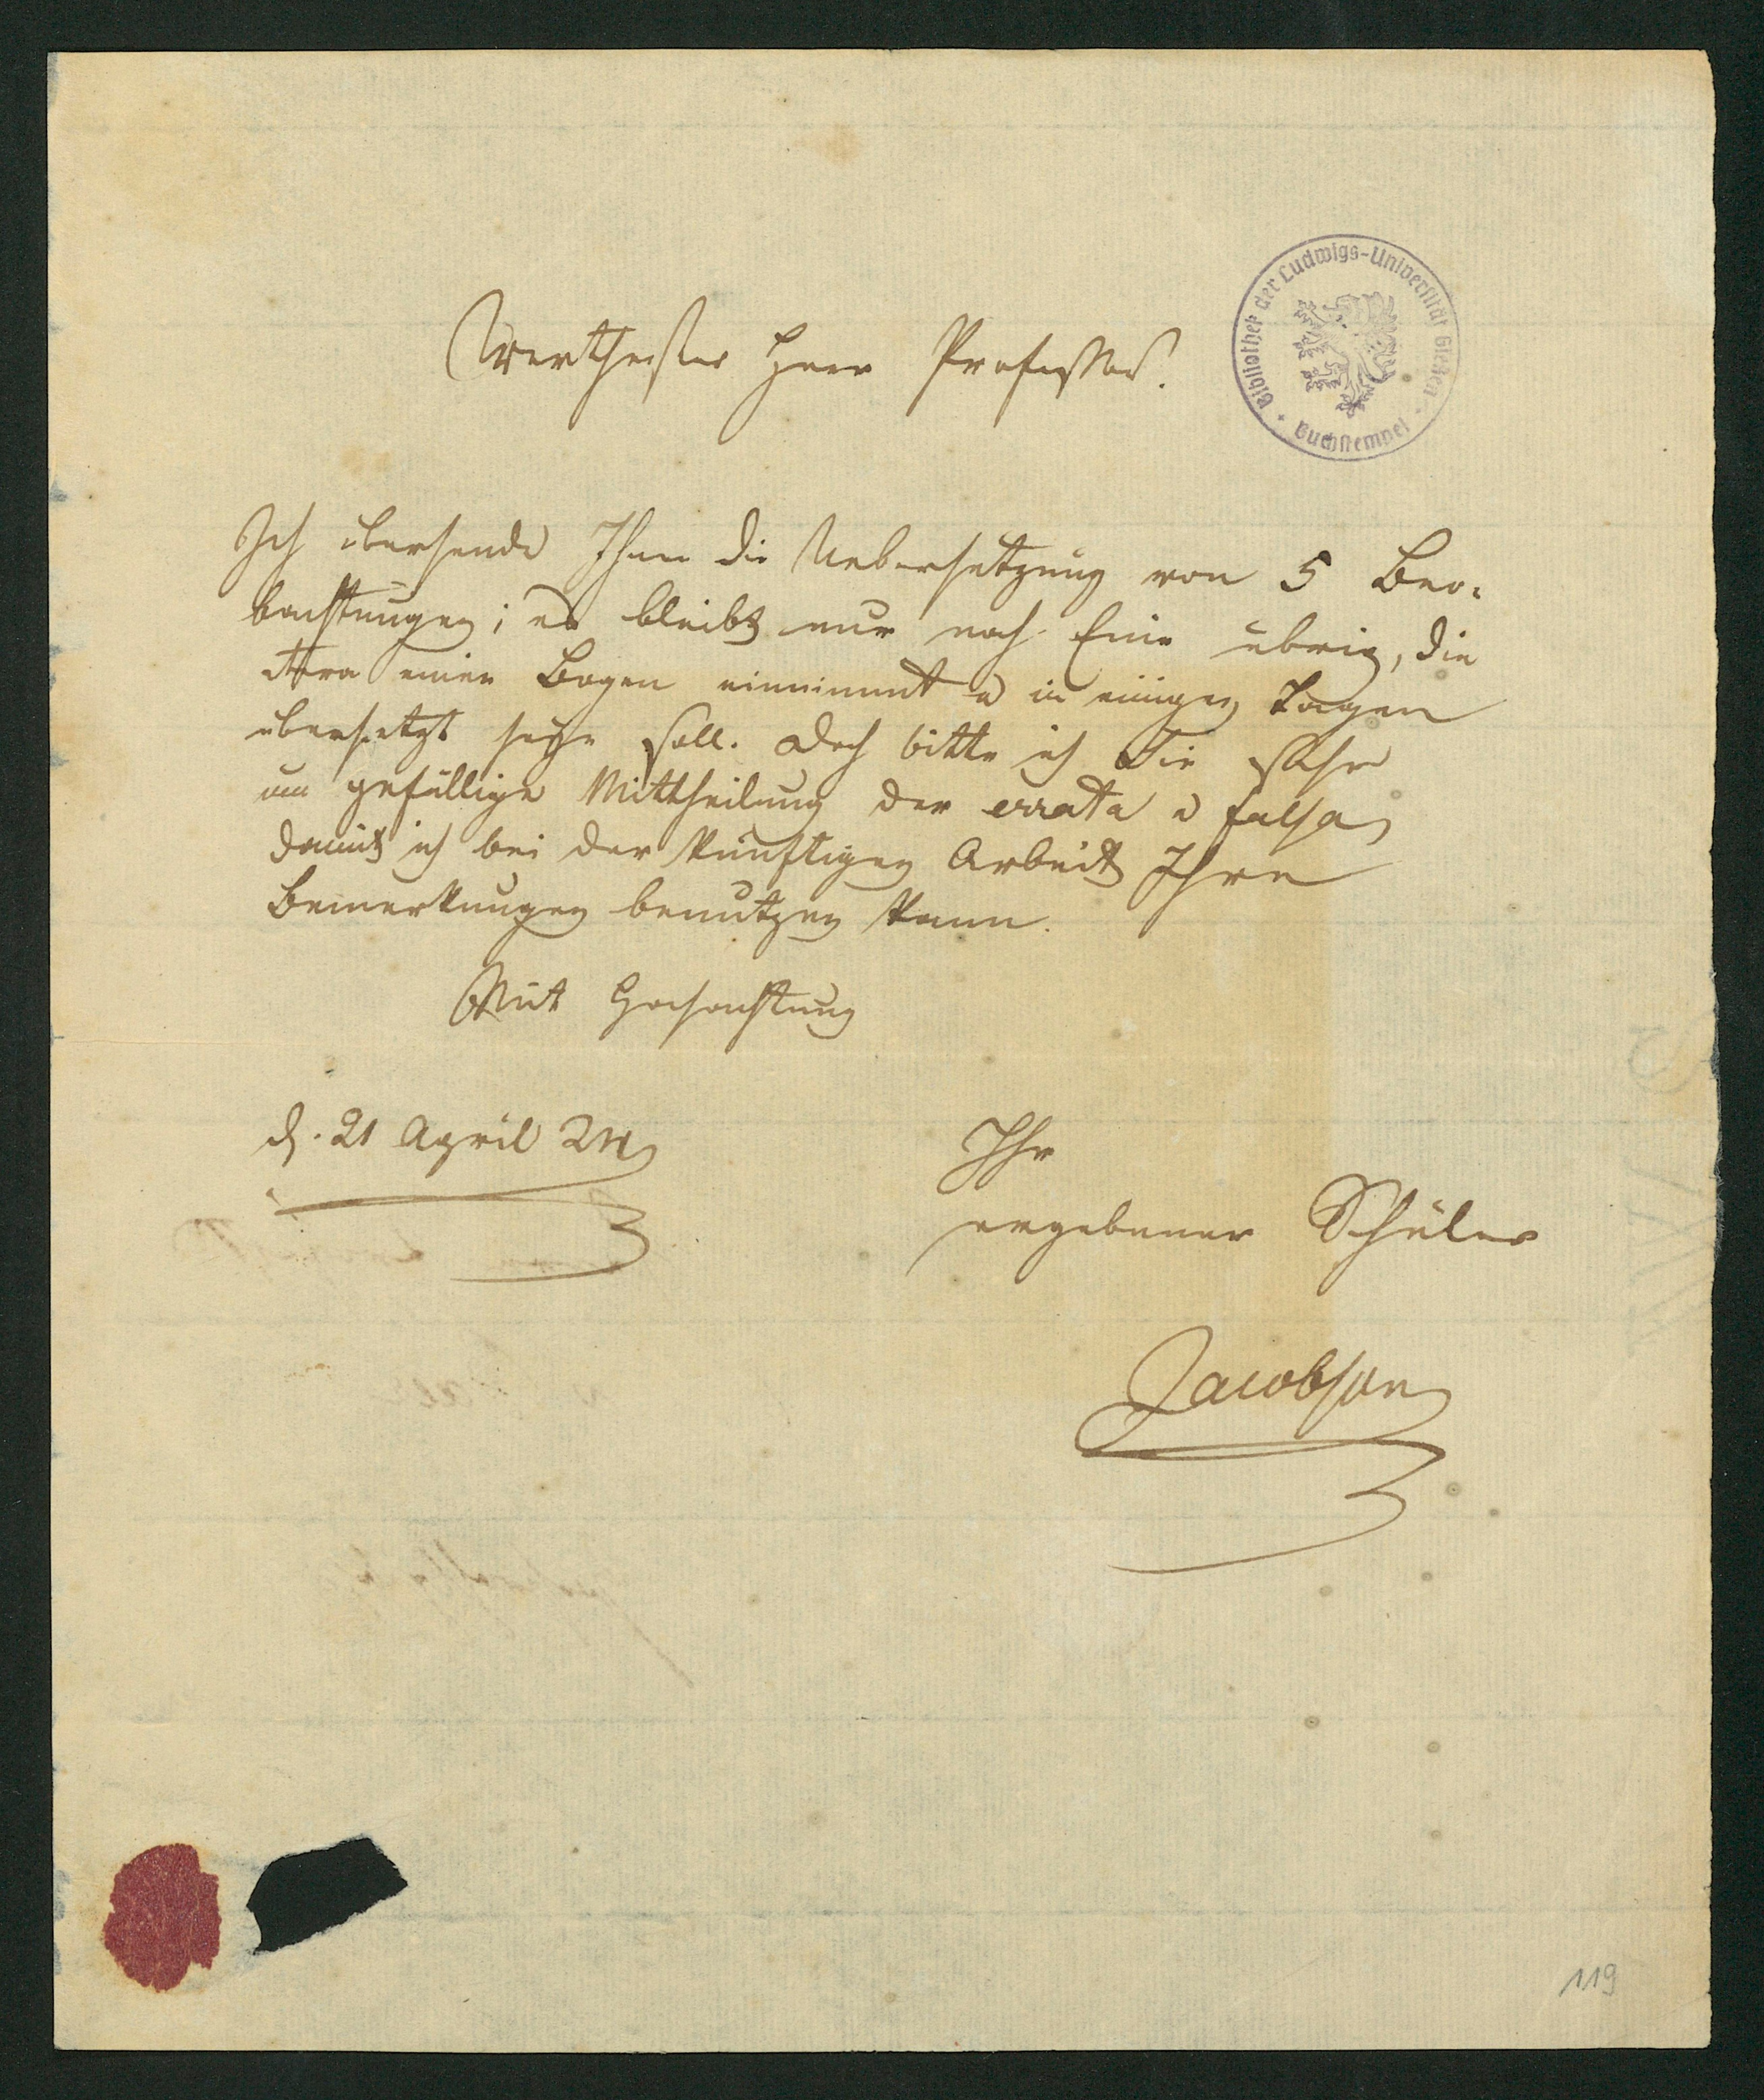 Werthester Herr Professor.
Bibliothek der Ludwigs-Universität Gießen
Buchstempel
Ich übersende Ihnen die Uebersetzung von 5 Beo-
bachtungen; es bleibt nur noch Eine übrig, die
etwa einen Bogen einnimmt u in einigen Tagen
übersetzt seyn soll. Doch bitte ich Sie sehr
um gefällige Mittheilung der errata u falsa,
damit ich bei der künftigen Arbeit Ihre
Bemerkungen benutzen kann.
Mit Hochachtung
d. 21 April
Ihr
ergebener Schüler
Jacobson
119